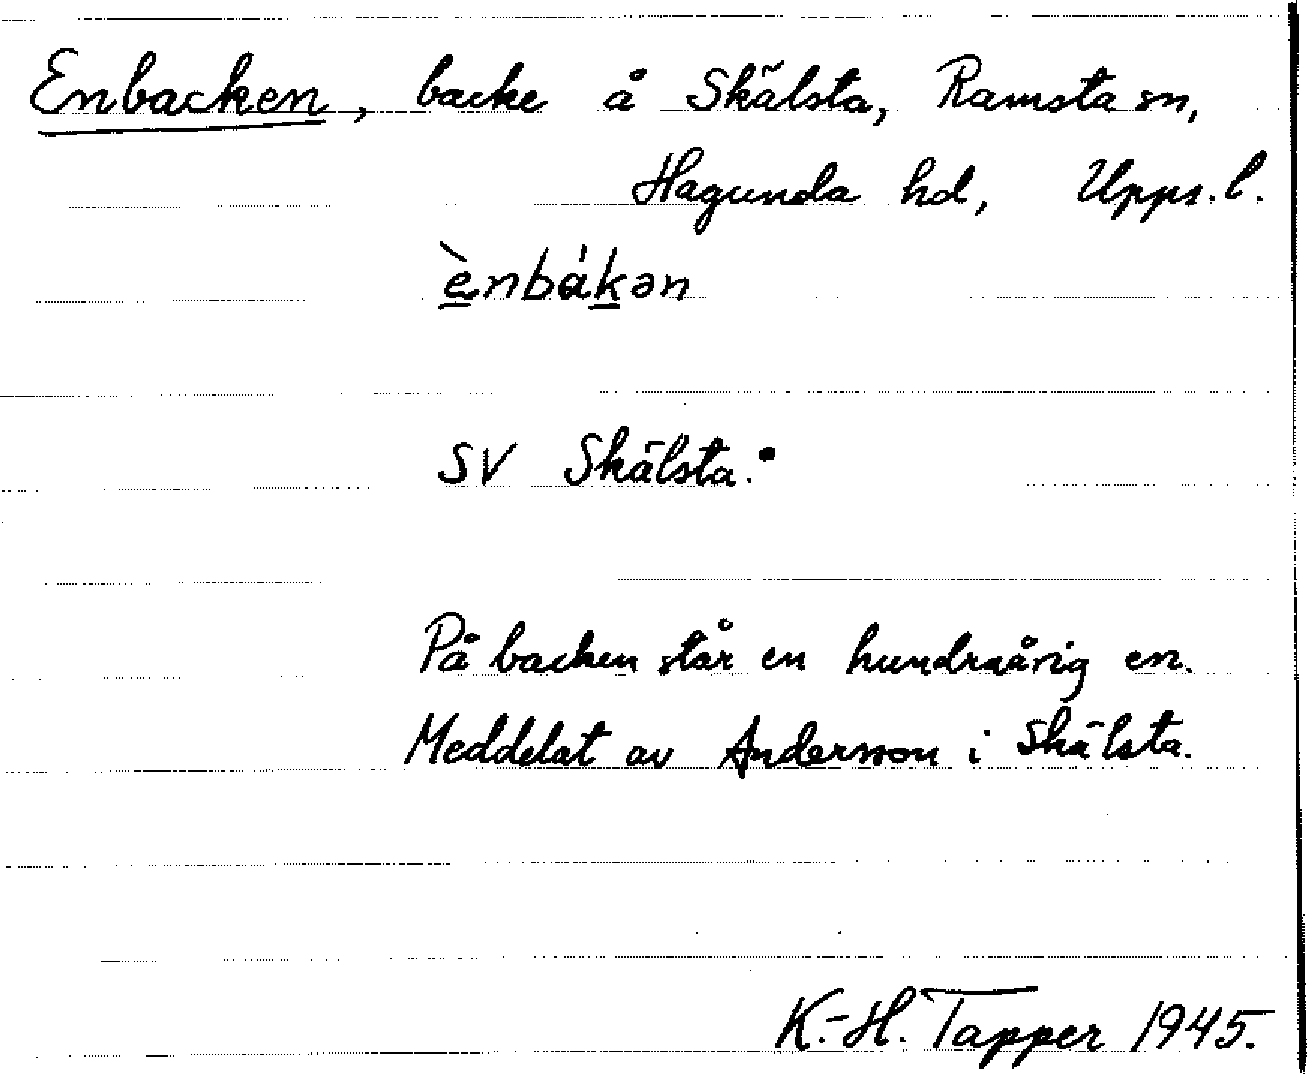 Enbacken, backe å Skälsta, Ramsta sn,
Hagunda hd, Upps. l.
ènbákən
SV Skälsta.
På backen står en hundraårig en.
Meddelat av Andersson i Skälsta.
K.-H. Tapper 1945.